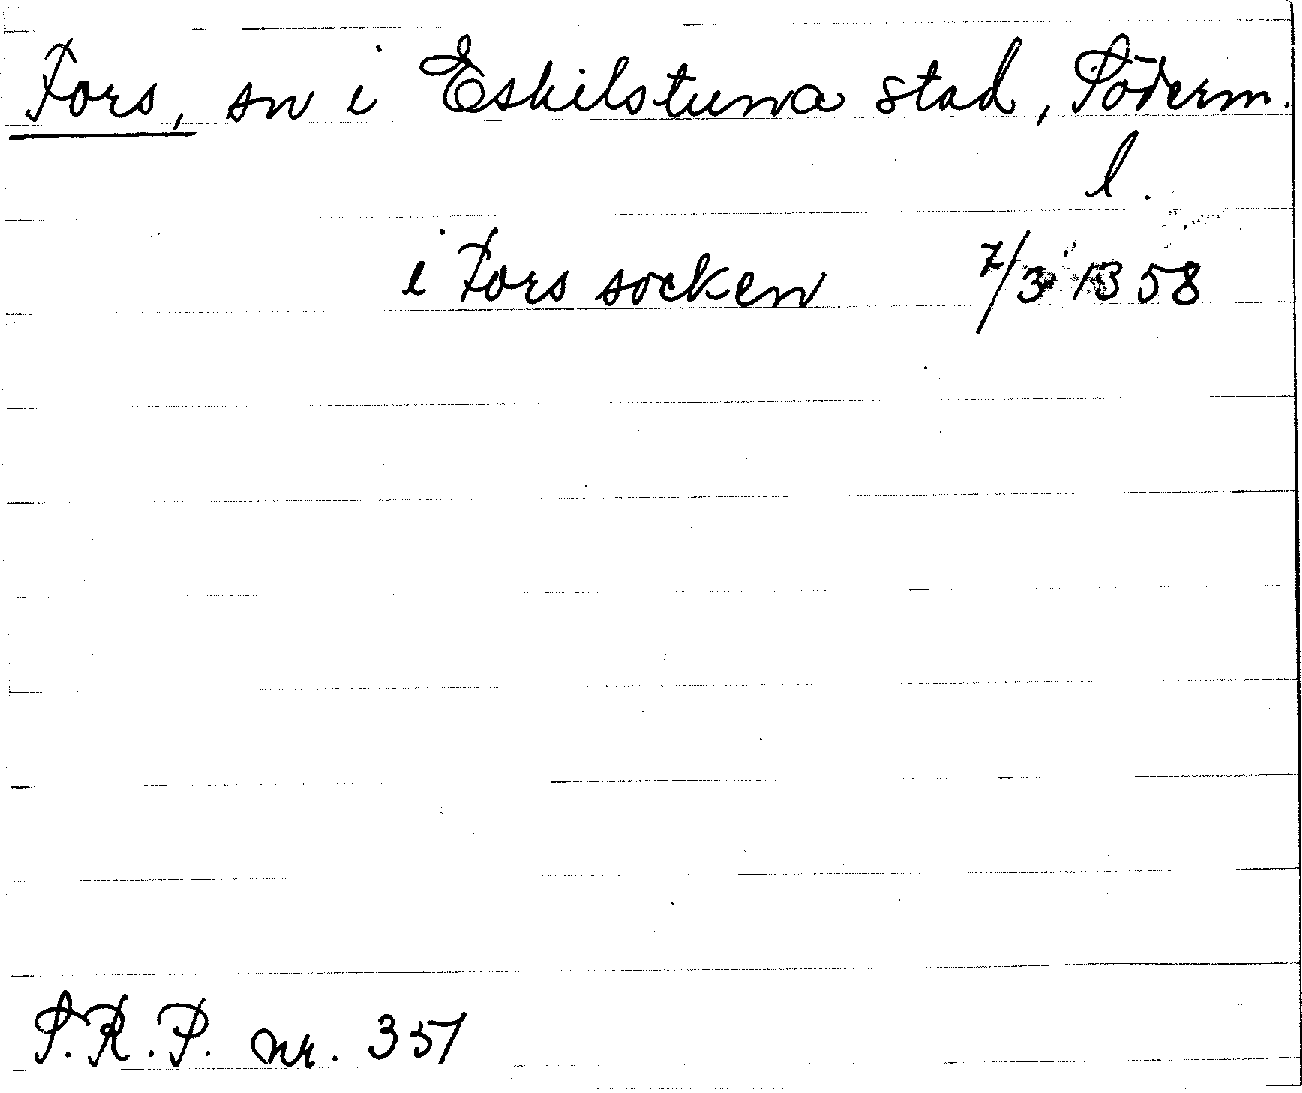 Fors, sn i Eskilstuna stad, Söderm.
l.
i Fors socken 7/3 1358
S.R.P. nr. 351